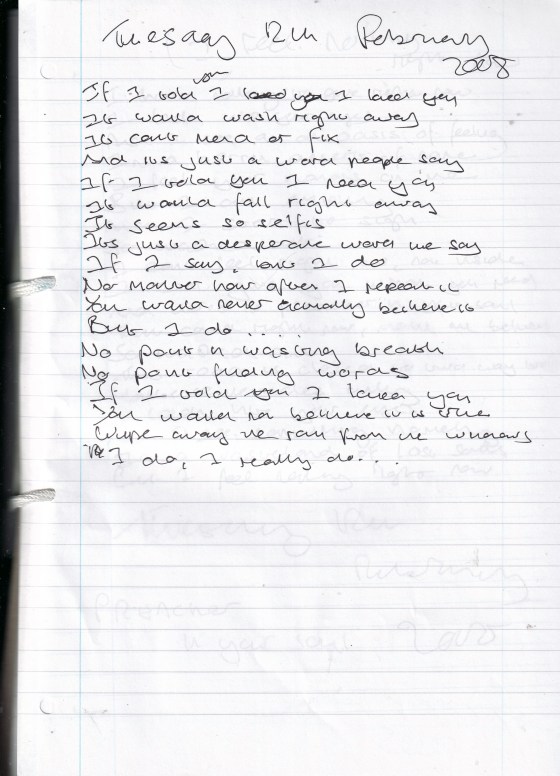 Tuesday 12th February
2008
If I told you I loved you I loved you
It would wash right away
It cant mend or fix
And its just a word people say
If I told you I need you
It would fall right away
It seems so selfis
Its just a desperate word we say
If I say, that I do
No matter how often I repeat it
You would never actually believe it
But I do .....
No point in wasting breath
No point finding words
If I told you I loved you
You would not believe it is true
Wipe away the rain from the windows
I do, I really do...
PREACHER
2008